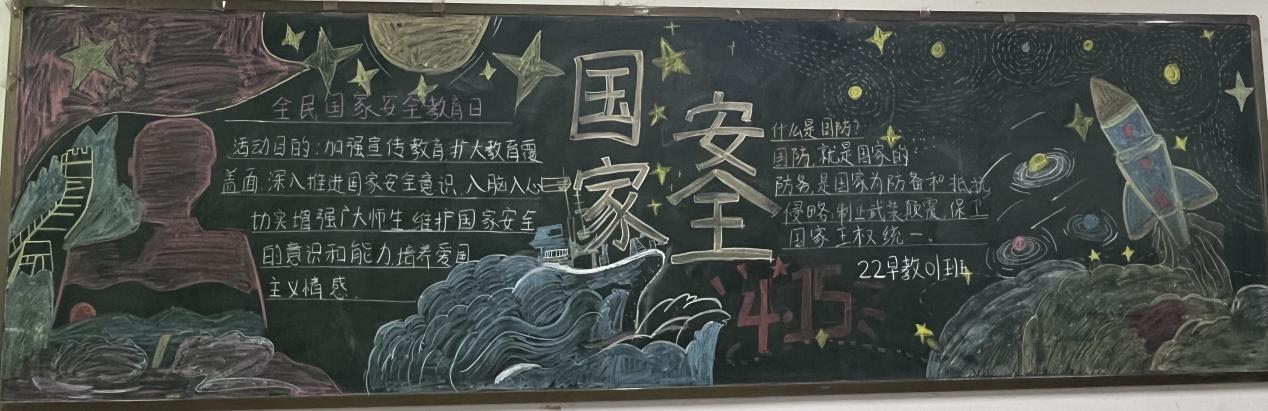 全民国家安全教育日
活动目的:加强宣传教育,扩大教育覆
盖面,深入推进国家安全意识,入脑入心
切实增强广大师生,维护国家安全
的意识和能力,培养爱国
主义情感.
国家
安全
4.15
什么是国防?
国防,就是国家的:
防务,是国家为防备和抵抗
侵略,制止武装颠覆,保卫
国家主权统一。
22早教01班